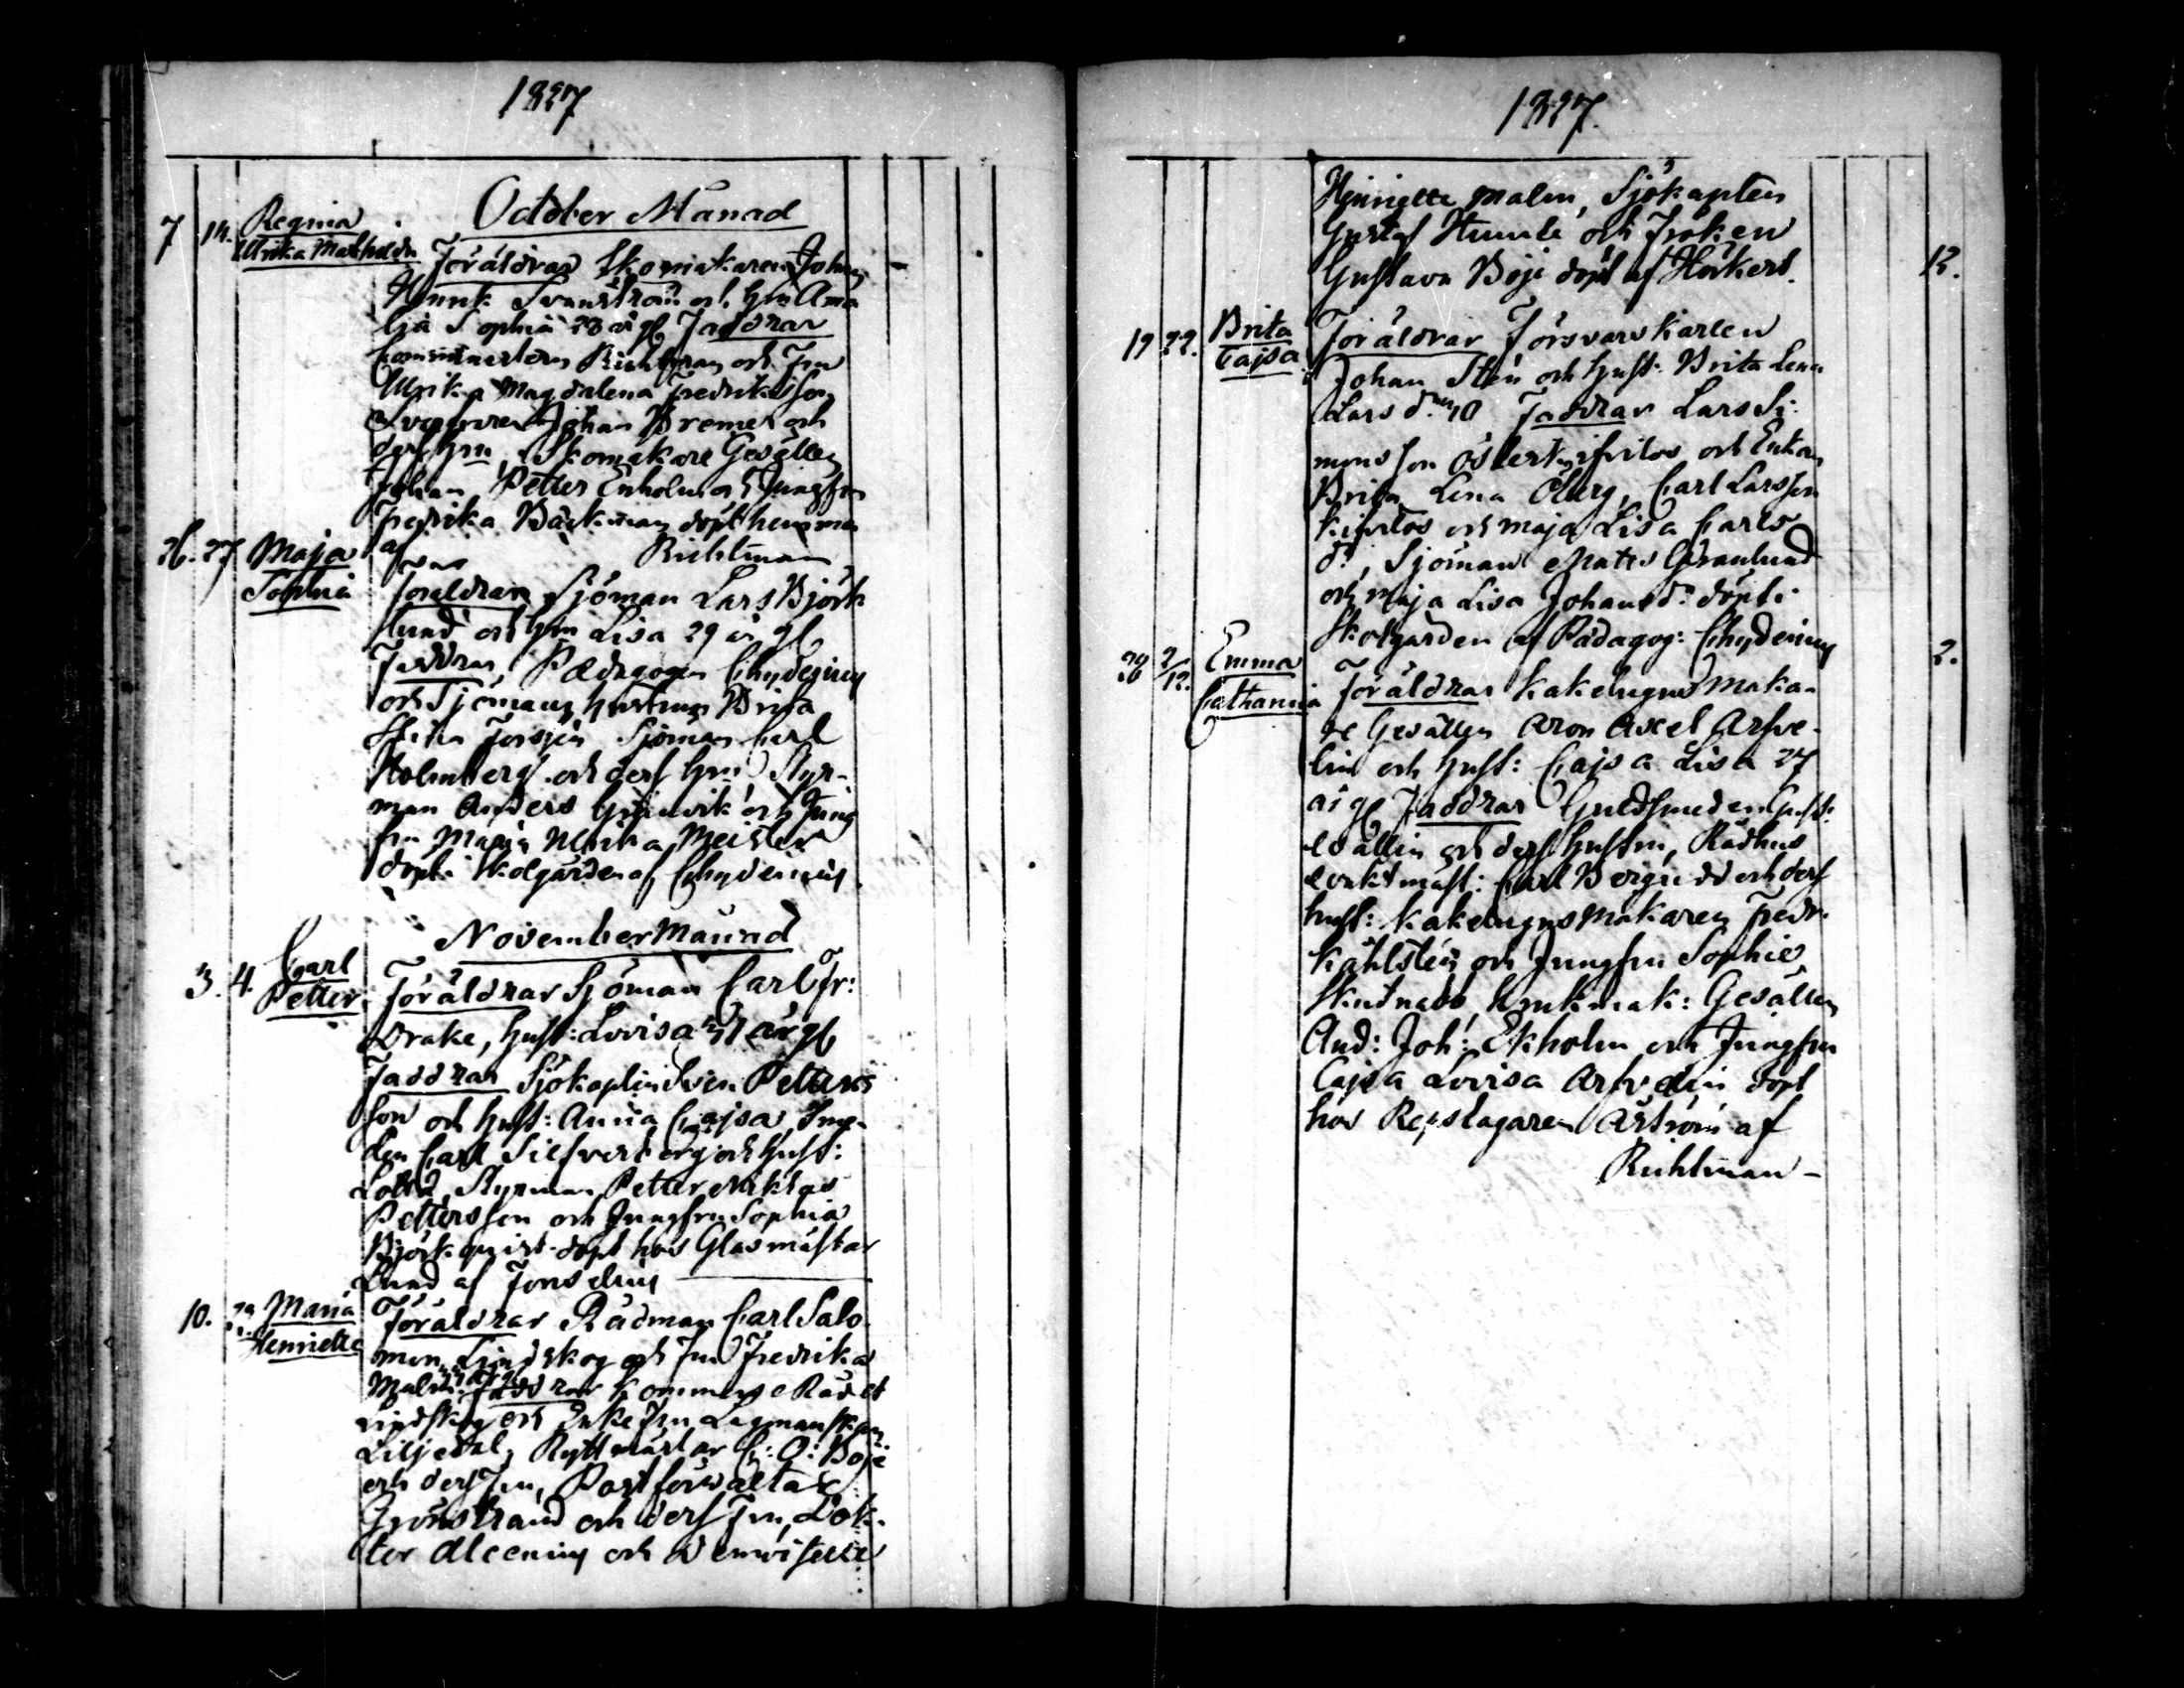 1827
October Månad
7 14. Regina
Ulrika Mathilda Föräldrar Skomakaren Johan
Henrik Svanström och hru Ama
lja Sophia 28 år gl Faddrar
Richtman och Fru
Ulrika Magdalena Fredriksson
Johan Bremer och
ders hru, Skomakare Gesällen
Johan Petter Enholm och Jungfru
Fredrika Bäckman döpt hemma
af Richtman
26. 27 Maja
Sophia Föräldrar Sjöman Lars Björk
lund och hru Lisa 29 år gl
Faddrar, Pædagogen Chydenius
och Sjömans hustrun Brita
Stina Forsjen Sjöman Carl
Holmberg och ders hru Styr-
man Anders Grönvik och Jung
fru Maria Ulrika Meisler
döpt i Skolgården af Chydenius.
November Månad
3. 4. Carl
Petter Föräldrar Sjöman Carl Fr:
Drake, hust: Lovisa år gl
Faddrar Sjökapten Sven Petters
son och hust: Anna Cajsa, Sme-
den Carl Silfverberg och hust:
Lovisa, Styrman Petter Niklas
Pettersson och Jungfru Sophia
Björkqvist döpt hos Glasmästar
Lund af Forselius
10. 23. Maria
Henrietta Föräldrar Rådman Carl Salo
mon Lindskog och Fru Fredrika
Malm Faddrar Kommerse Rådet
Lindskog och Enke Fru Lagmanskan
Liljedal, Ryttmästar C: O: Boje
och ders Fru, Postförvaltar
Grönstrand och ders Fru, Dok-
tor och Demoiselle
1827.
Henriette Malm, Sjökapten
Gustaf Humle och Fröken
Gustava Boje döpt af Höckert. 12.
19 22. Brita
Cajsa Föräldrar Försvarskarlen
Johan Sten och hust: Brita Lena
Lars dr 40 Faddrar Lars Si-
monsson Österknifvilos och Enkan
Brita Lena Öberg, Carl Larsson
Knivlos och Maja Lisa Carls
dr, Sjöman Matts Granlund
och Maja Lisa Johansdr döpt i
Skolgården af Pädagog: Chydenius
28 2/12. Emma
Catharina Föräldrar Kakelugnsmaka- 2.
re Gesällen Aron Axel Arfve-
lin och hust: Cajsa Lisa 27
år gl Faddrar Guldsmeden Gust:
Wallin och ders hustru, Rådhus
vaktmäst: Carl Bergudd och ders
hust: Kakelugnsmakaren Fredr.
Kahlsten och Jungfru Sophie
Skutnabb, Krukmak: Gesällen
And: Joh: Ekholm och Jungfru
Cajsa Lovisa Arfvelin döpt
hos Repslagaren Åström af
Richtman -